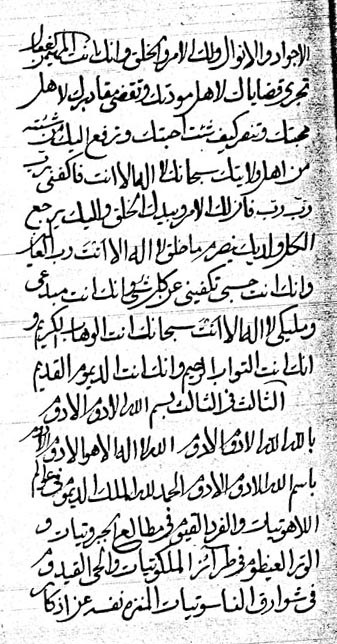 الاجواد والانوال ولك الامر والخلق وانك انت المهيمن
تجرى قضاياك لاهل مودتك وتقضى مقاديرك لاهل
محبتك وتنصر كيف شئت احبتك وترفع اليك من شئته
من اهل ولايتك سبحانك لا اله الا انت فاكفنى
رب رب فان لك الامر وبيدك الخلق واليك يرجع
الكل ولديك ما خلق لا اله الا انت رب
وانك انت حسبى تكفينى عن كل شىء وانك انت مبدعى
ومليكى لا اله الا انت سبحانك انت الوهاب الكريم و
انك انت التواب الرحيم وانك انت الديموم القديم
الثالث فى الثالث بسم الله الادوم الادوم
بالله الله الادوم الادوم الله لا اله الا هو الادوم الادوم
باسم الله الادوم الادوم الحمد لله الملك الديموم فى عوالم
اللاهوتيات والفرد القيوم فى مطالع الجبروتيات و
الوتر العيظوم فى طرائز الملكوتيات والحى القيدوم
فى شوارق الناسوتيات المنزه نفسه عن اذكار